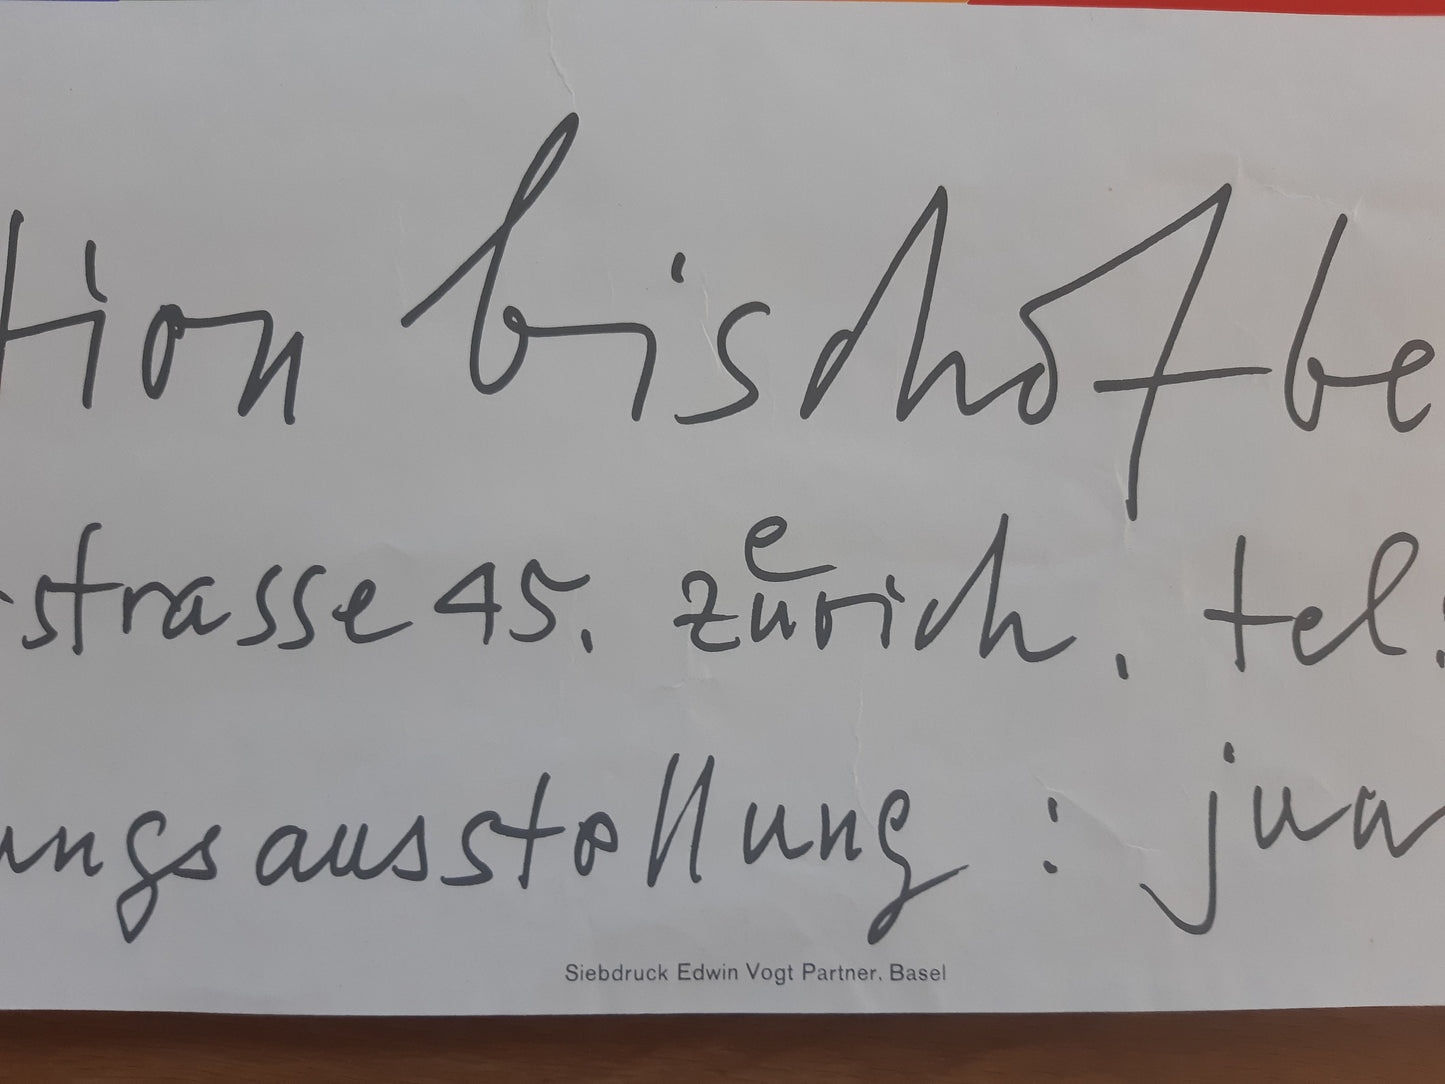 tion bischofbe
strasse 45. zürich. tel.
ungsausstellung : juan
Siebdruck Edwin Vogt Partner. Basel